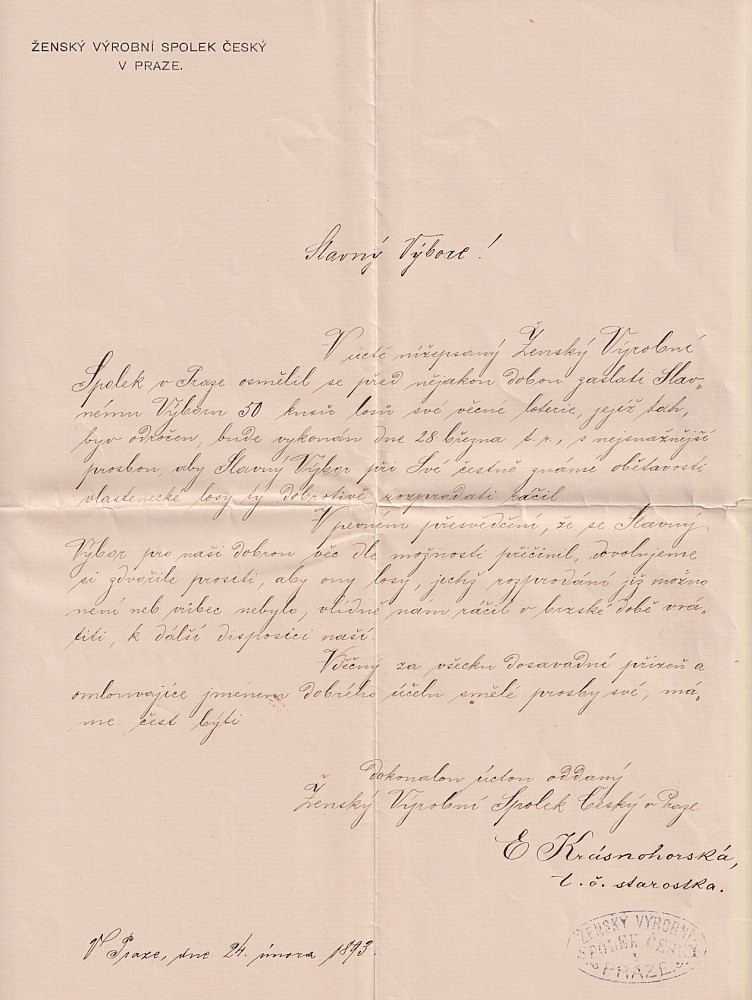 ŽENSKÝ VÝROBNÍ SPOLEK ČESKÝ
V PRAZE.
Slavný Výbore!
V úctě nížepsaný Ženský Výrobní
Spolek v Praze osmělil se před nějakou dobou zaslati Slav-
nému Výboru 50 kusů losů své věcné loterie, jejíž tah,
byv odročen, bude vykonán dne 28 března t. r., s nejsnažnější
prosbou, aby Slavný Výbor při Své čestně známé obětavosti
vlastenecké losy ty dobrotivě rozprodati ráčil
V pevném přesvědčení, že se Slavný
Výbor pro naši dobrou věc dle možnosti přičinil, dovolujeme
si zdvořile prositi, aby ony losy, jichž rozprodání již možno
není neb vůbec nebylo, vlídně nám ráčil v brzské době vrá-
titi, k dálší disposici naší.
Vděčný za všecku dosavadní přízeň a
omlouvajíce jménem dobrého účelu smělé prosby své, má-
me čest býti
dokonalou úctou oddaný
Ženský Výrobní Spolek Český v Praze.
E Krásnohorská,
t. č. starostka.
V Praze, dne 24. února 1893.
ŽENSKÝ VÝROBNÍ
SPOLEK ČESKÝ
V
PRAZE